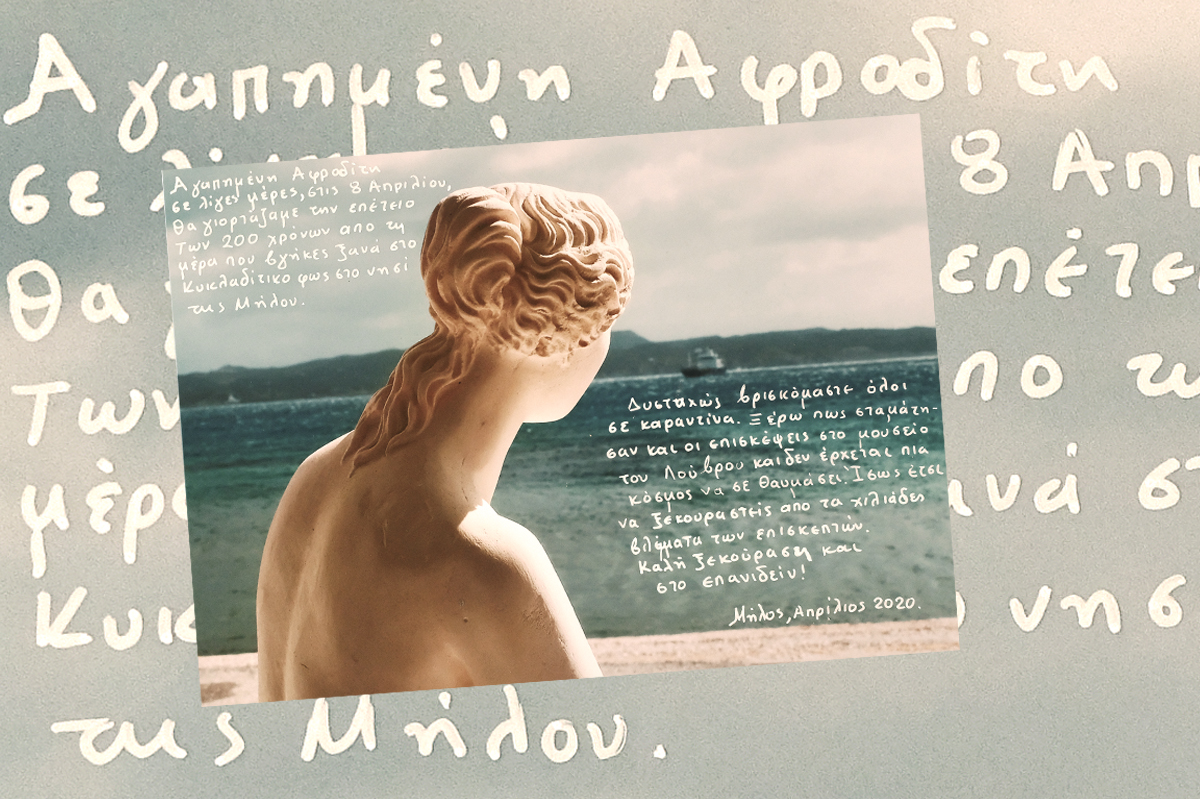 Αγαπημένη Αφροδίτη
σε
8 Απρ
Θα
επέτε
Των
πο τη
μέρα
ανά στ
Κυκ
νησ
της Μήλου.
Αγαπημένη Αφροδίτη
σε λίγες μέρες, στις 8 Απριλίου,
θα γιορτάζαμε την επέτειο
των 200 χρόνων απο τη
μέρα που βγήκες ξανά στο
Κυκλαδίτικο φως στο νησί
της Μήλου.
Δυστυχώς βρισκόμαστε όλοι
σε καραντίνα. Ξέρω πως σταμάτη-
σαν και οι επισκέψεις στο μουσείο
του Λούβρου και δεν έρχεται πια
κόσμος να σε θαυμάσει. Ίσως έτσι
να ξεκουραστείς απο τα χιλιάδες
βλέμματα των επισκεπτών.
Καλή ξεκούραση και
στο επανιδείν!
Μήλος, Απρίλιος 2020.